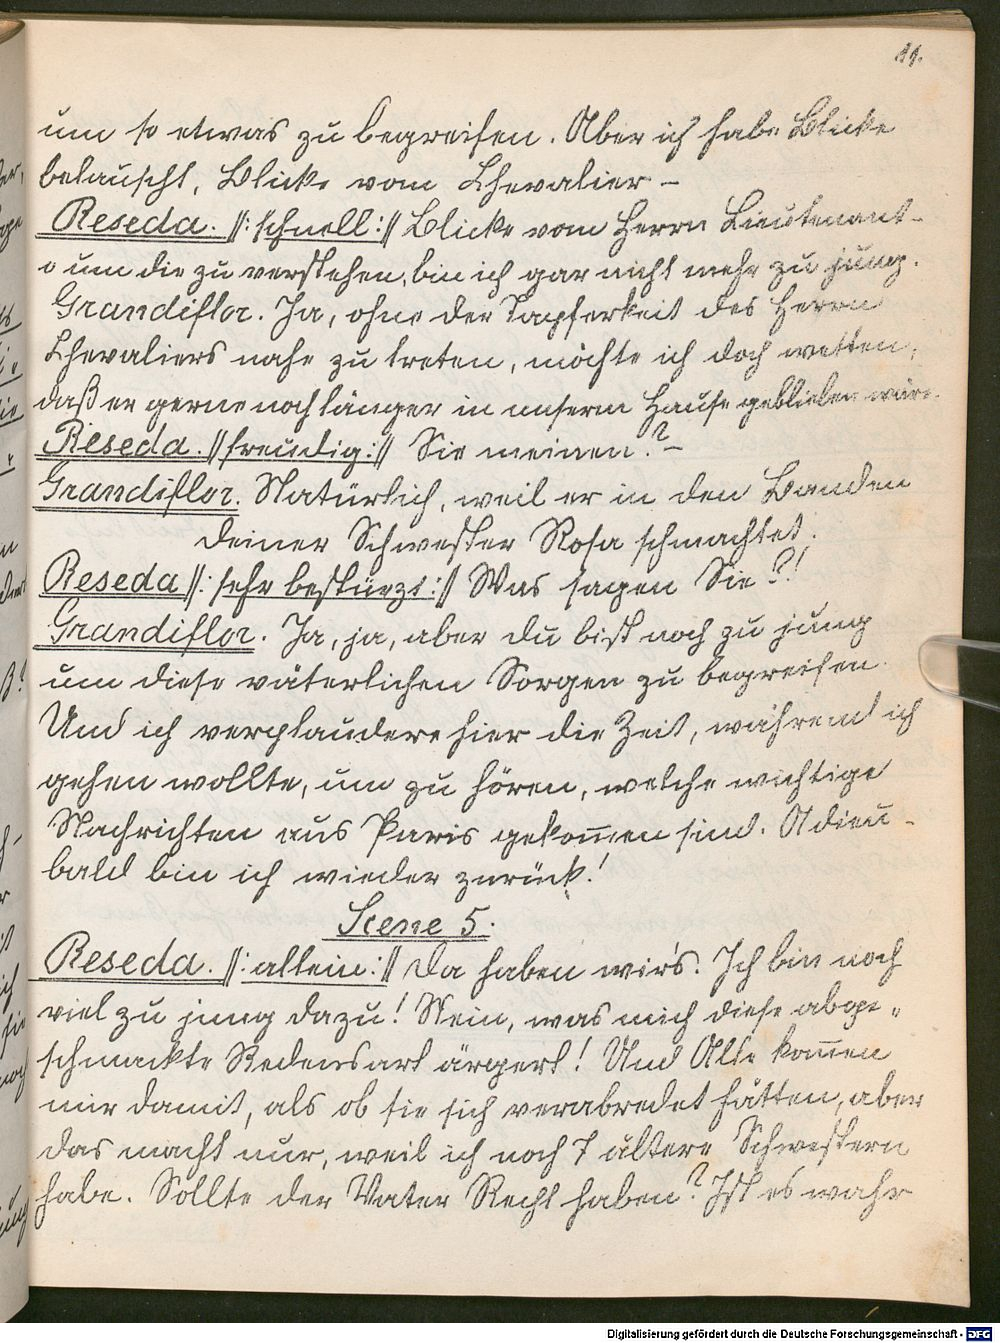 11.
um so etwas zu begreifen. Aber ich habe Blicke
belauscht, Blicke vom Chevalier –
Reseda. //: schnell :// Blicke vom Herrn Lieutenant –
o um die zu verstehen, bin ich gar nicht mehr zu jung.
Grandiflor. Ja, ohne der Tapferkeit des Herrn
Chevaliers nahe zu treten, möchte ich doch wetten,
daß er gerne noch länger in unserm Hause geblieben wäre.
Reseda. // freudig :// Sie meinen? –
Grandiflor. Natürlich, weil er in den Banden
deiner Schwester Rosa schmachtet.
Reseda //: sehr bestürzt :// Was sagen Sie?!
Grandiflor. Ja, ja, aber du bist noch zu jung
um diese väterlichen Sorgen zu begreifen.
Und ich verplaudere hier die Zeit, während ich
gehen wollte, um zu hören, welche wichtige
Nachrichten aus Paris gekom̅en sind. Adieu –
bald bin ich wieder zurück!
Scene 5.
Reseda. //: allein :// Da haben wir's. Ich bin noch
viel zu jung dazu! Nein, was mich diese abge„
schmackte Redensart ärgert! Und Alle kom̅en
mir damit, als ob sie sich verabredet hätten, aber
das macht nur, weil ich noch 7 ältere Schwestern
habe. Sollte der Vater Recht haben? Ist es wahr
Digitalisierung gefördert durch die Deutsche Forschungsgemeinschaft - DFG